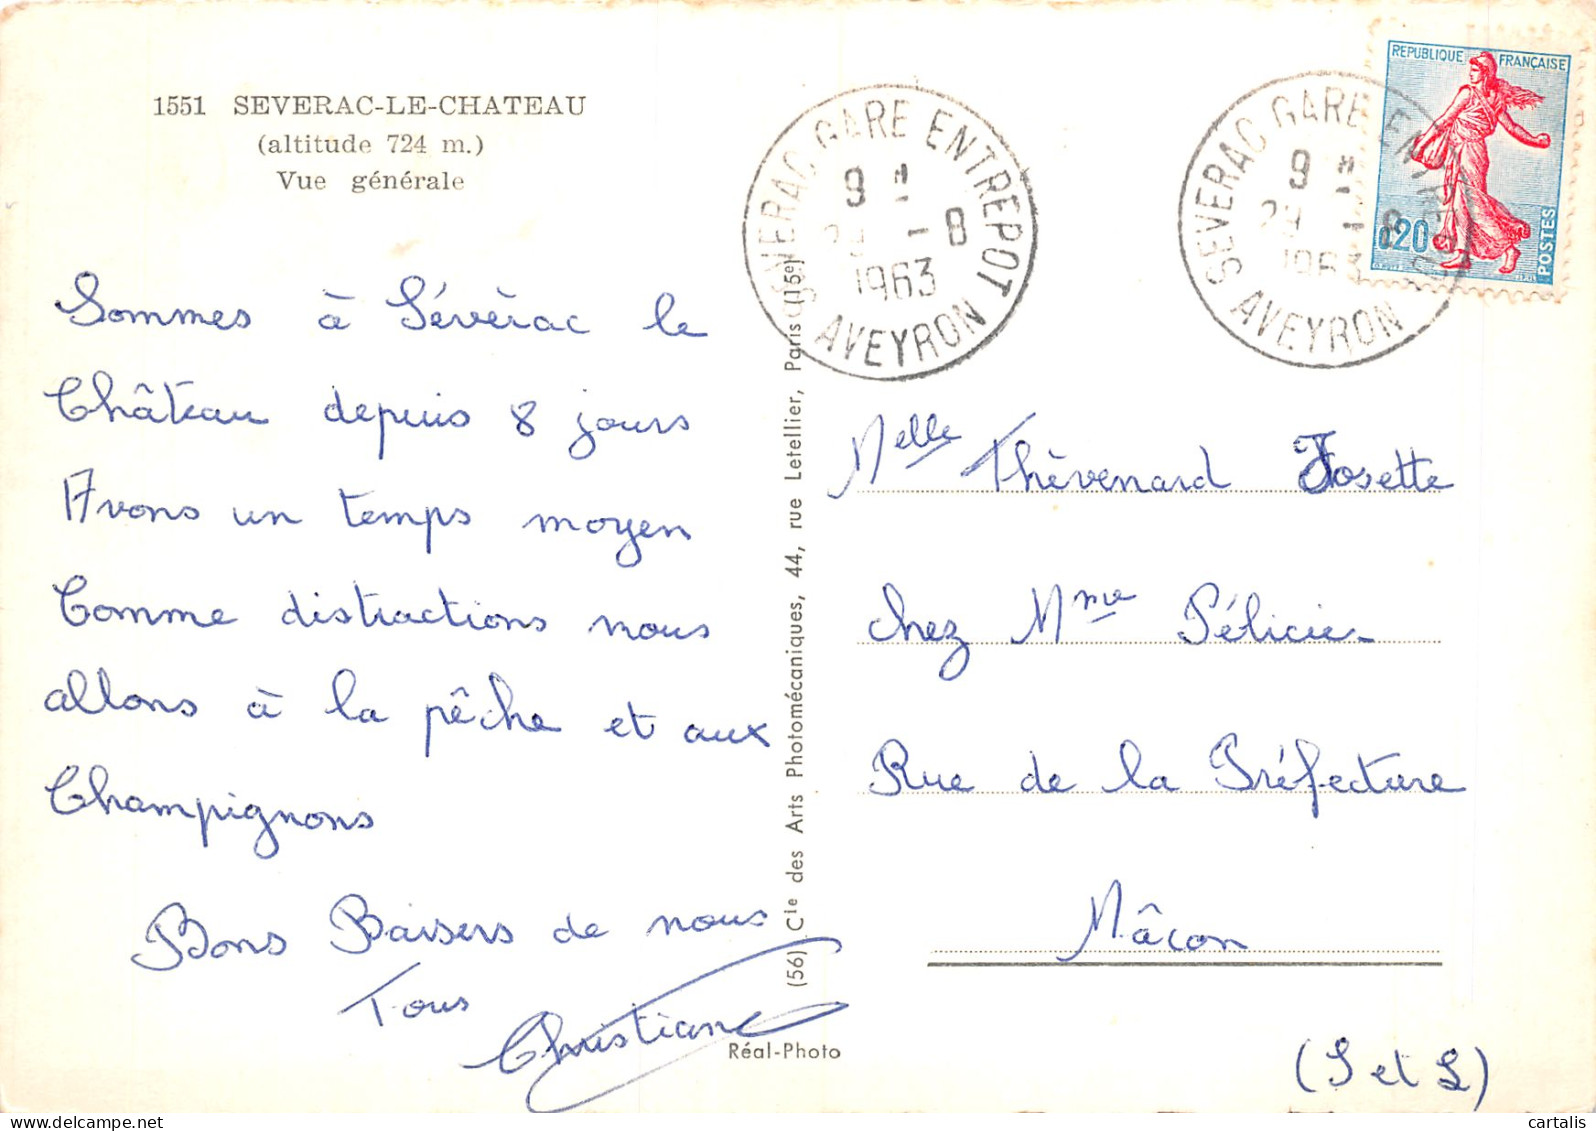 1551 SEVERAC-LE-CHATEAU
(altitude 724 m.)
Vue générale
Sommes à Sévèrac le
Château depuis 8 jours
Avons un temps moyen
Comme distractions nous
allons à la pêche et aux
Champignons
Bons Baisers de nous
Tous
Christian
(56) Cie des Arts Photomécaniques, 44, rue Letellier, Paris (15e)
Réal-Photo
SEVERAC GARE ENTREPOT
9 H
29 -8
1963
AVEYRON
SEVERAC GARE ENTREPOT
9 H
29 -8
1963
AVEYRON
REPUBLIQUE FRANÇAISE
0,20
POSTES
Melle Thèvenard Josette
chez Mme Pélicier
Rue de la Préfecture
Mâcon
(S et L)
cartalis